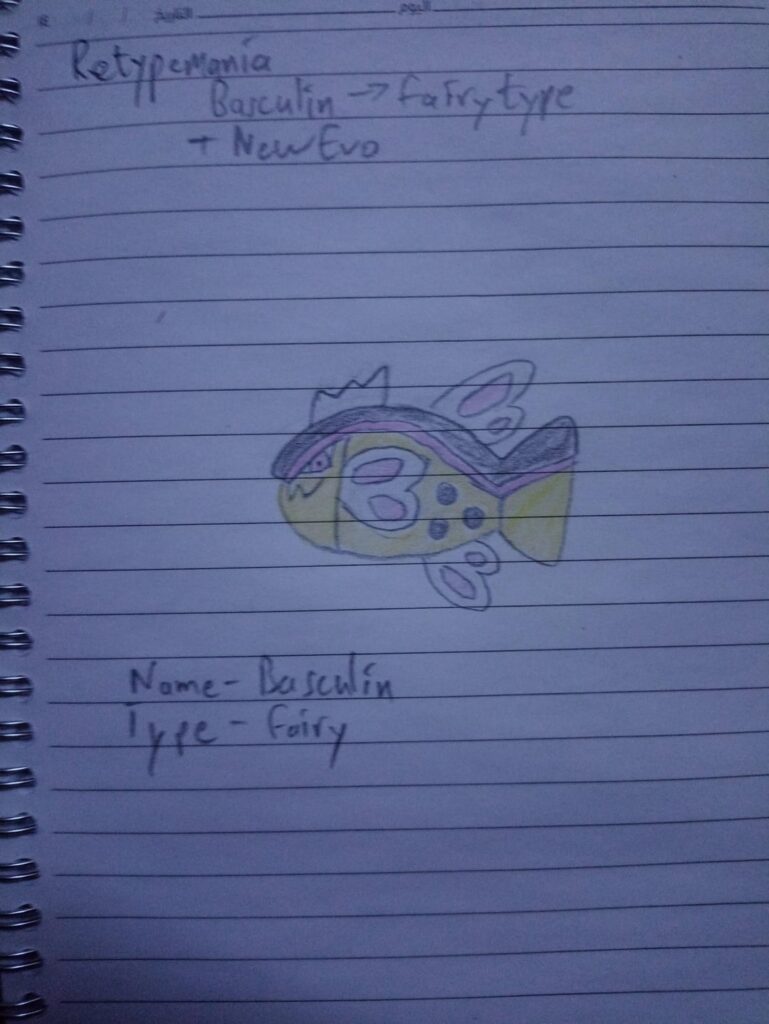 التاريخ
اليوم
Retypemania
Basculin → fairy type
+ New Evo
Name - Basculin
Type - Fairy